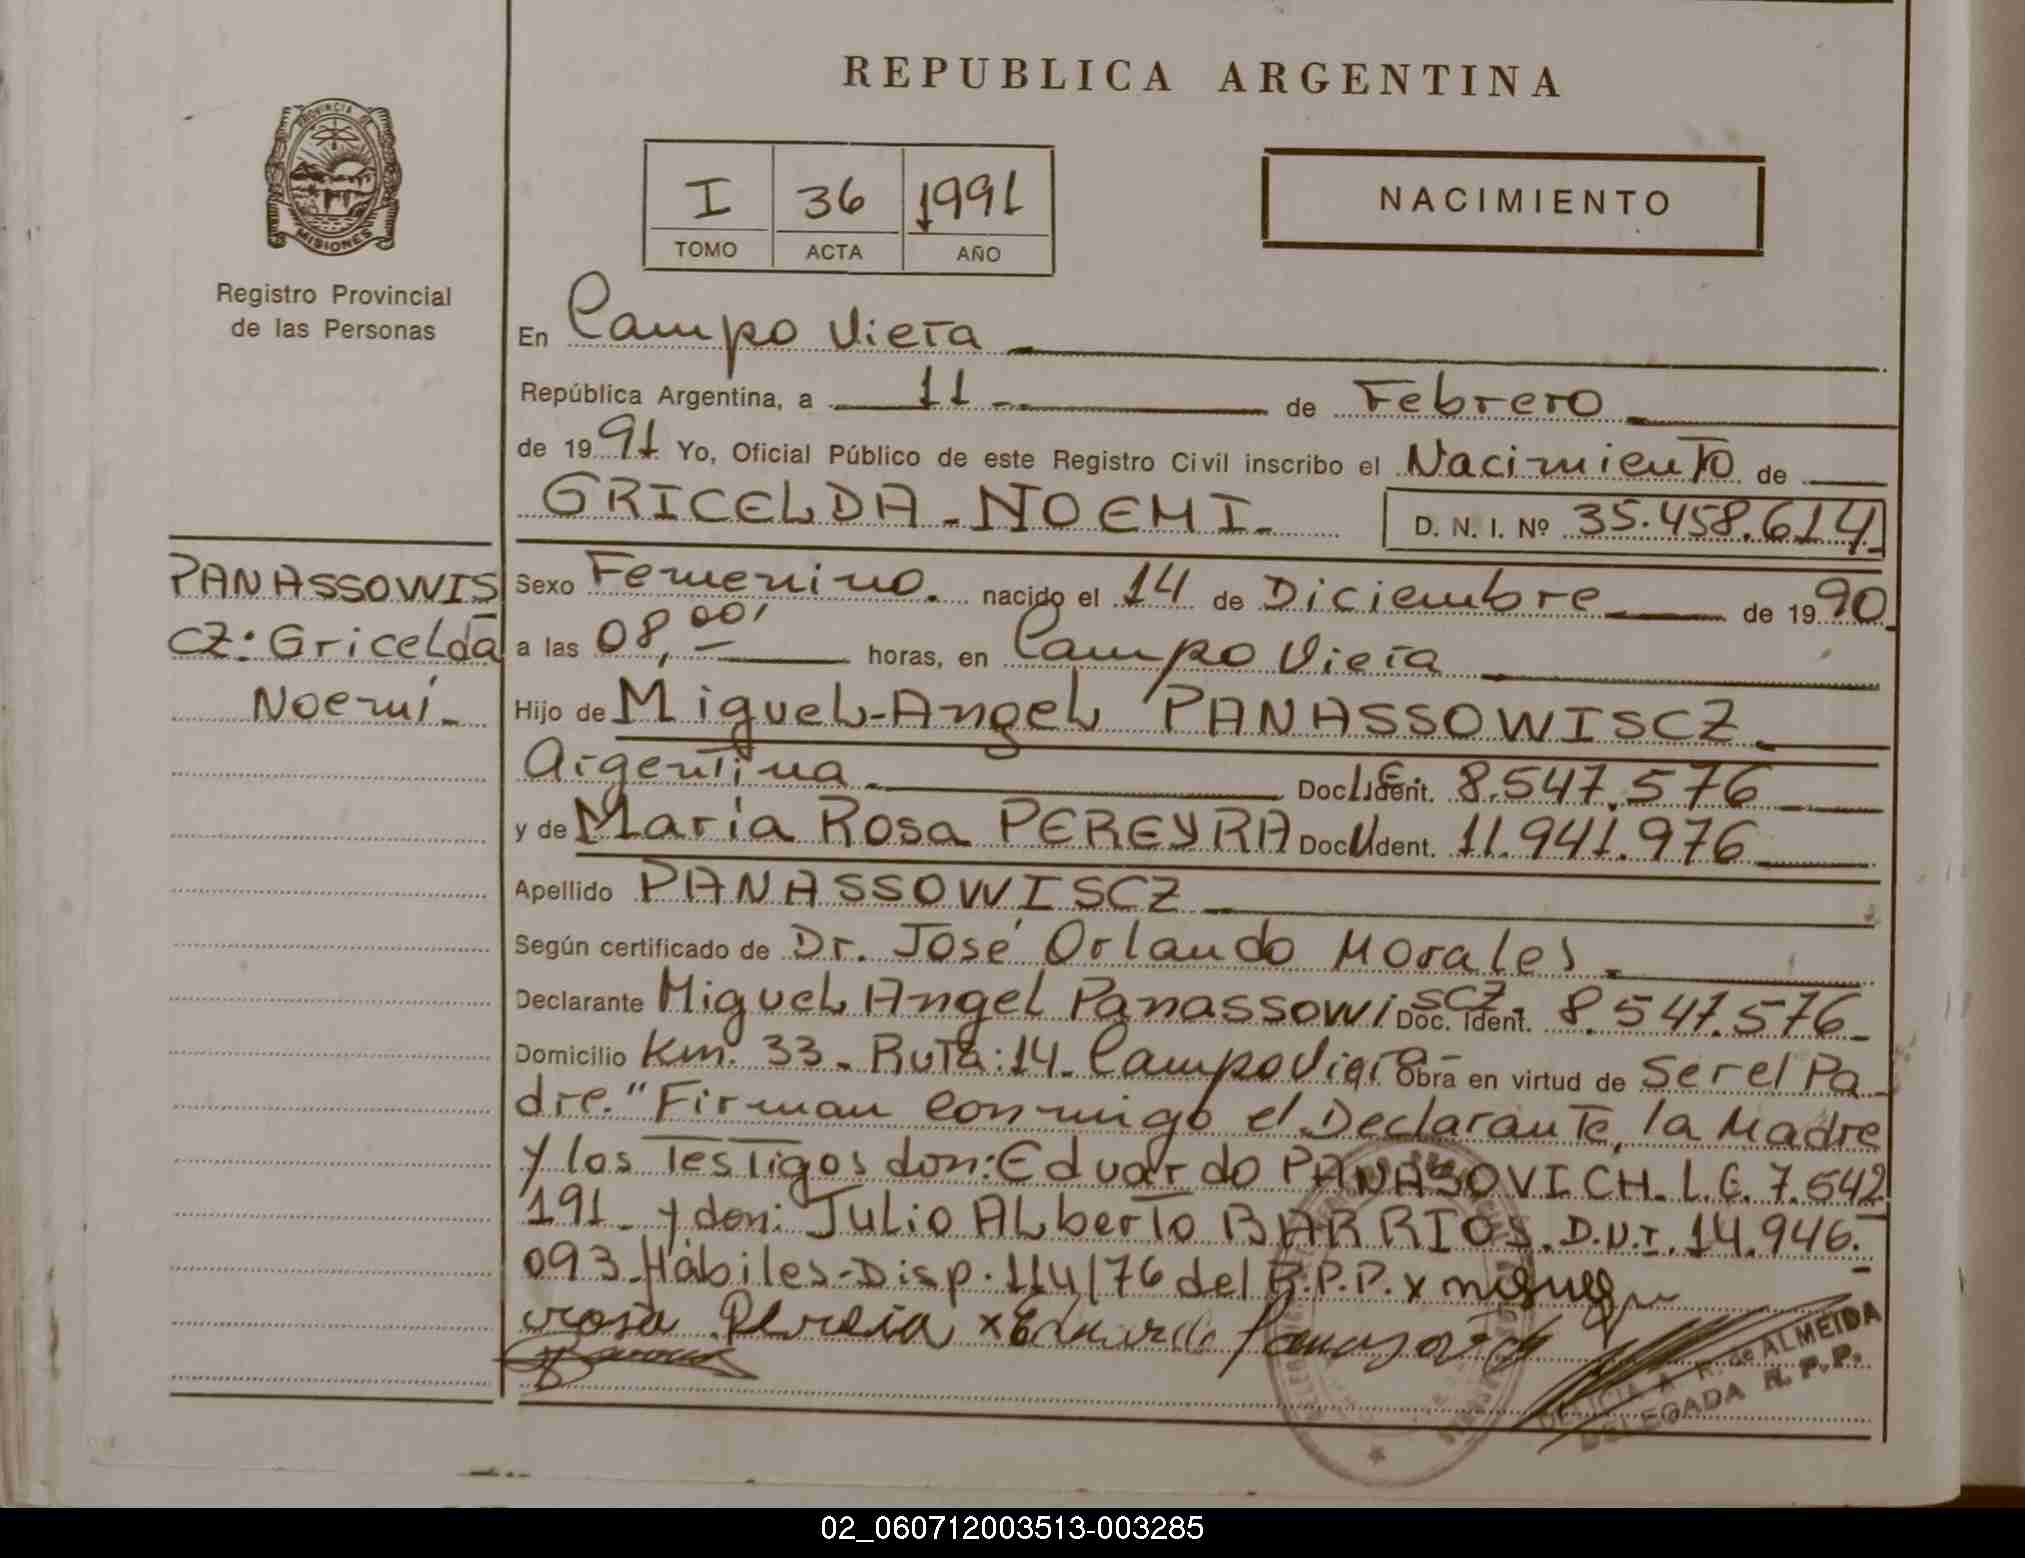 REPUBLICA ARGENTINA
PROVINCIA DE
MISIONES
Registro Provincial
de las Personas
I 36 1991
TOMO ACTA AÑO
NACIMIENTO
En Campo Viera
República Argentina, a 11 de Febrero
de 1991 Yo, Oficial Público de este Registro Civil inscribo el Nacimiento de
GRICELDA-NOEMI- D. N. I. Nº 35.458.614
PANASSOWIS
CZ: Gricelda
Noemi-
Sexo Femenino. nacido el 14 de Diciembre de 1990
a las 08,00' horas, en Campo Viera
Hijo de Miguel-Angel PANASSOWISCZ
Argentina Doc. Ident. L.E. 8.547.576
y de Maria Rosa PEREYRA Doc. Ident. 11.941.976
Apellido PANASSOWISCZ
Según certificado de Dr. José Orlando Morales
Declarante Miguel Angel Panassowiscz- Doc. Ident. 8.547.576
Domicilio Km. 33- Ruta: 14- Campo Viera- Obra en virtud de Ser el Pa
dre." Firman conmigo el Declarante, la Madre
y los Testigos don: Eduardo PANASOVICH. L.E. 7.542
191- y don: Julio ALberto BARRIOS. D.N.I. 14.946.
093-Hábiles-Disp. 114/76 del R.P.P. x miguel
rosa Pereia x Eduardo
DELICIA A. R. de ALMEIDA
DELEGADA R. P. P.
02_060712003513-003285